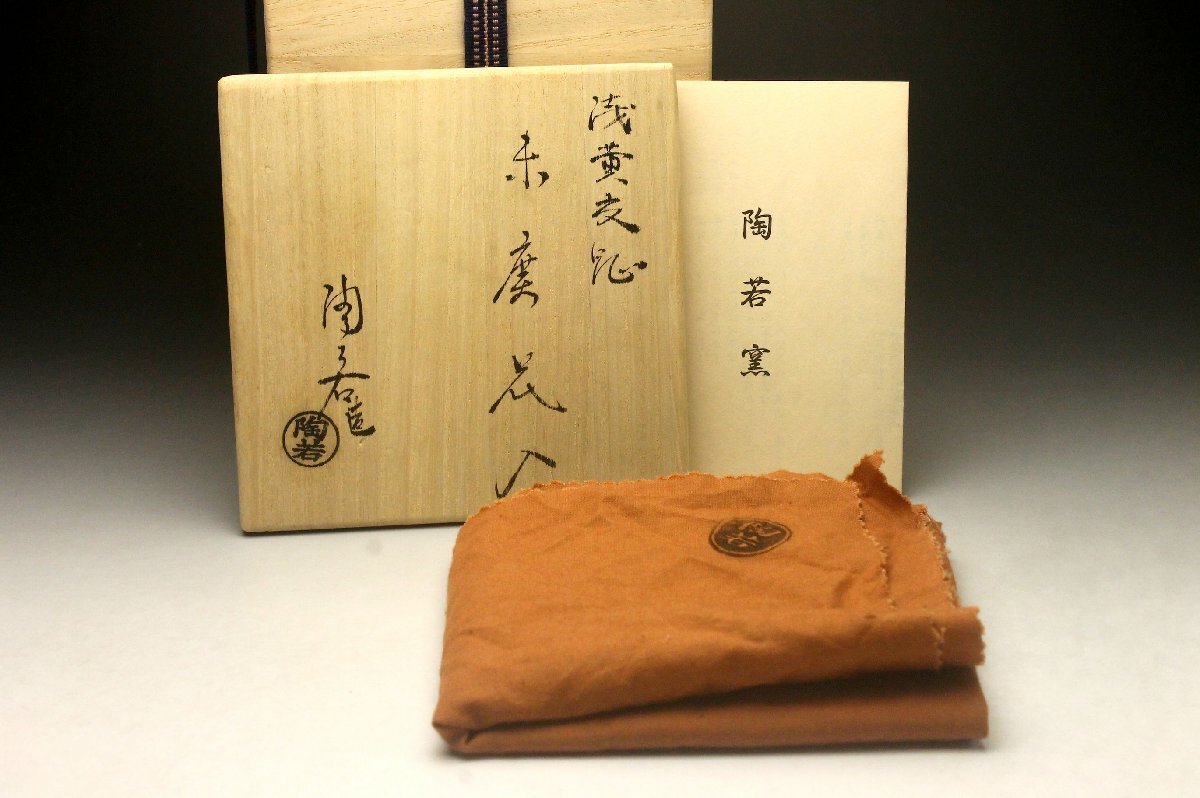 浅黄交趾
末廣花入
陶若造
陶若
陶若窯